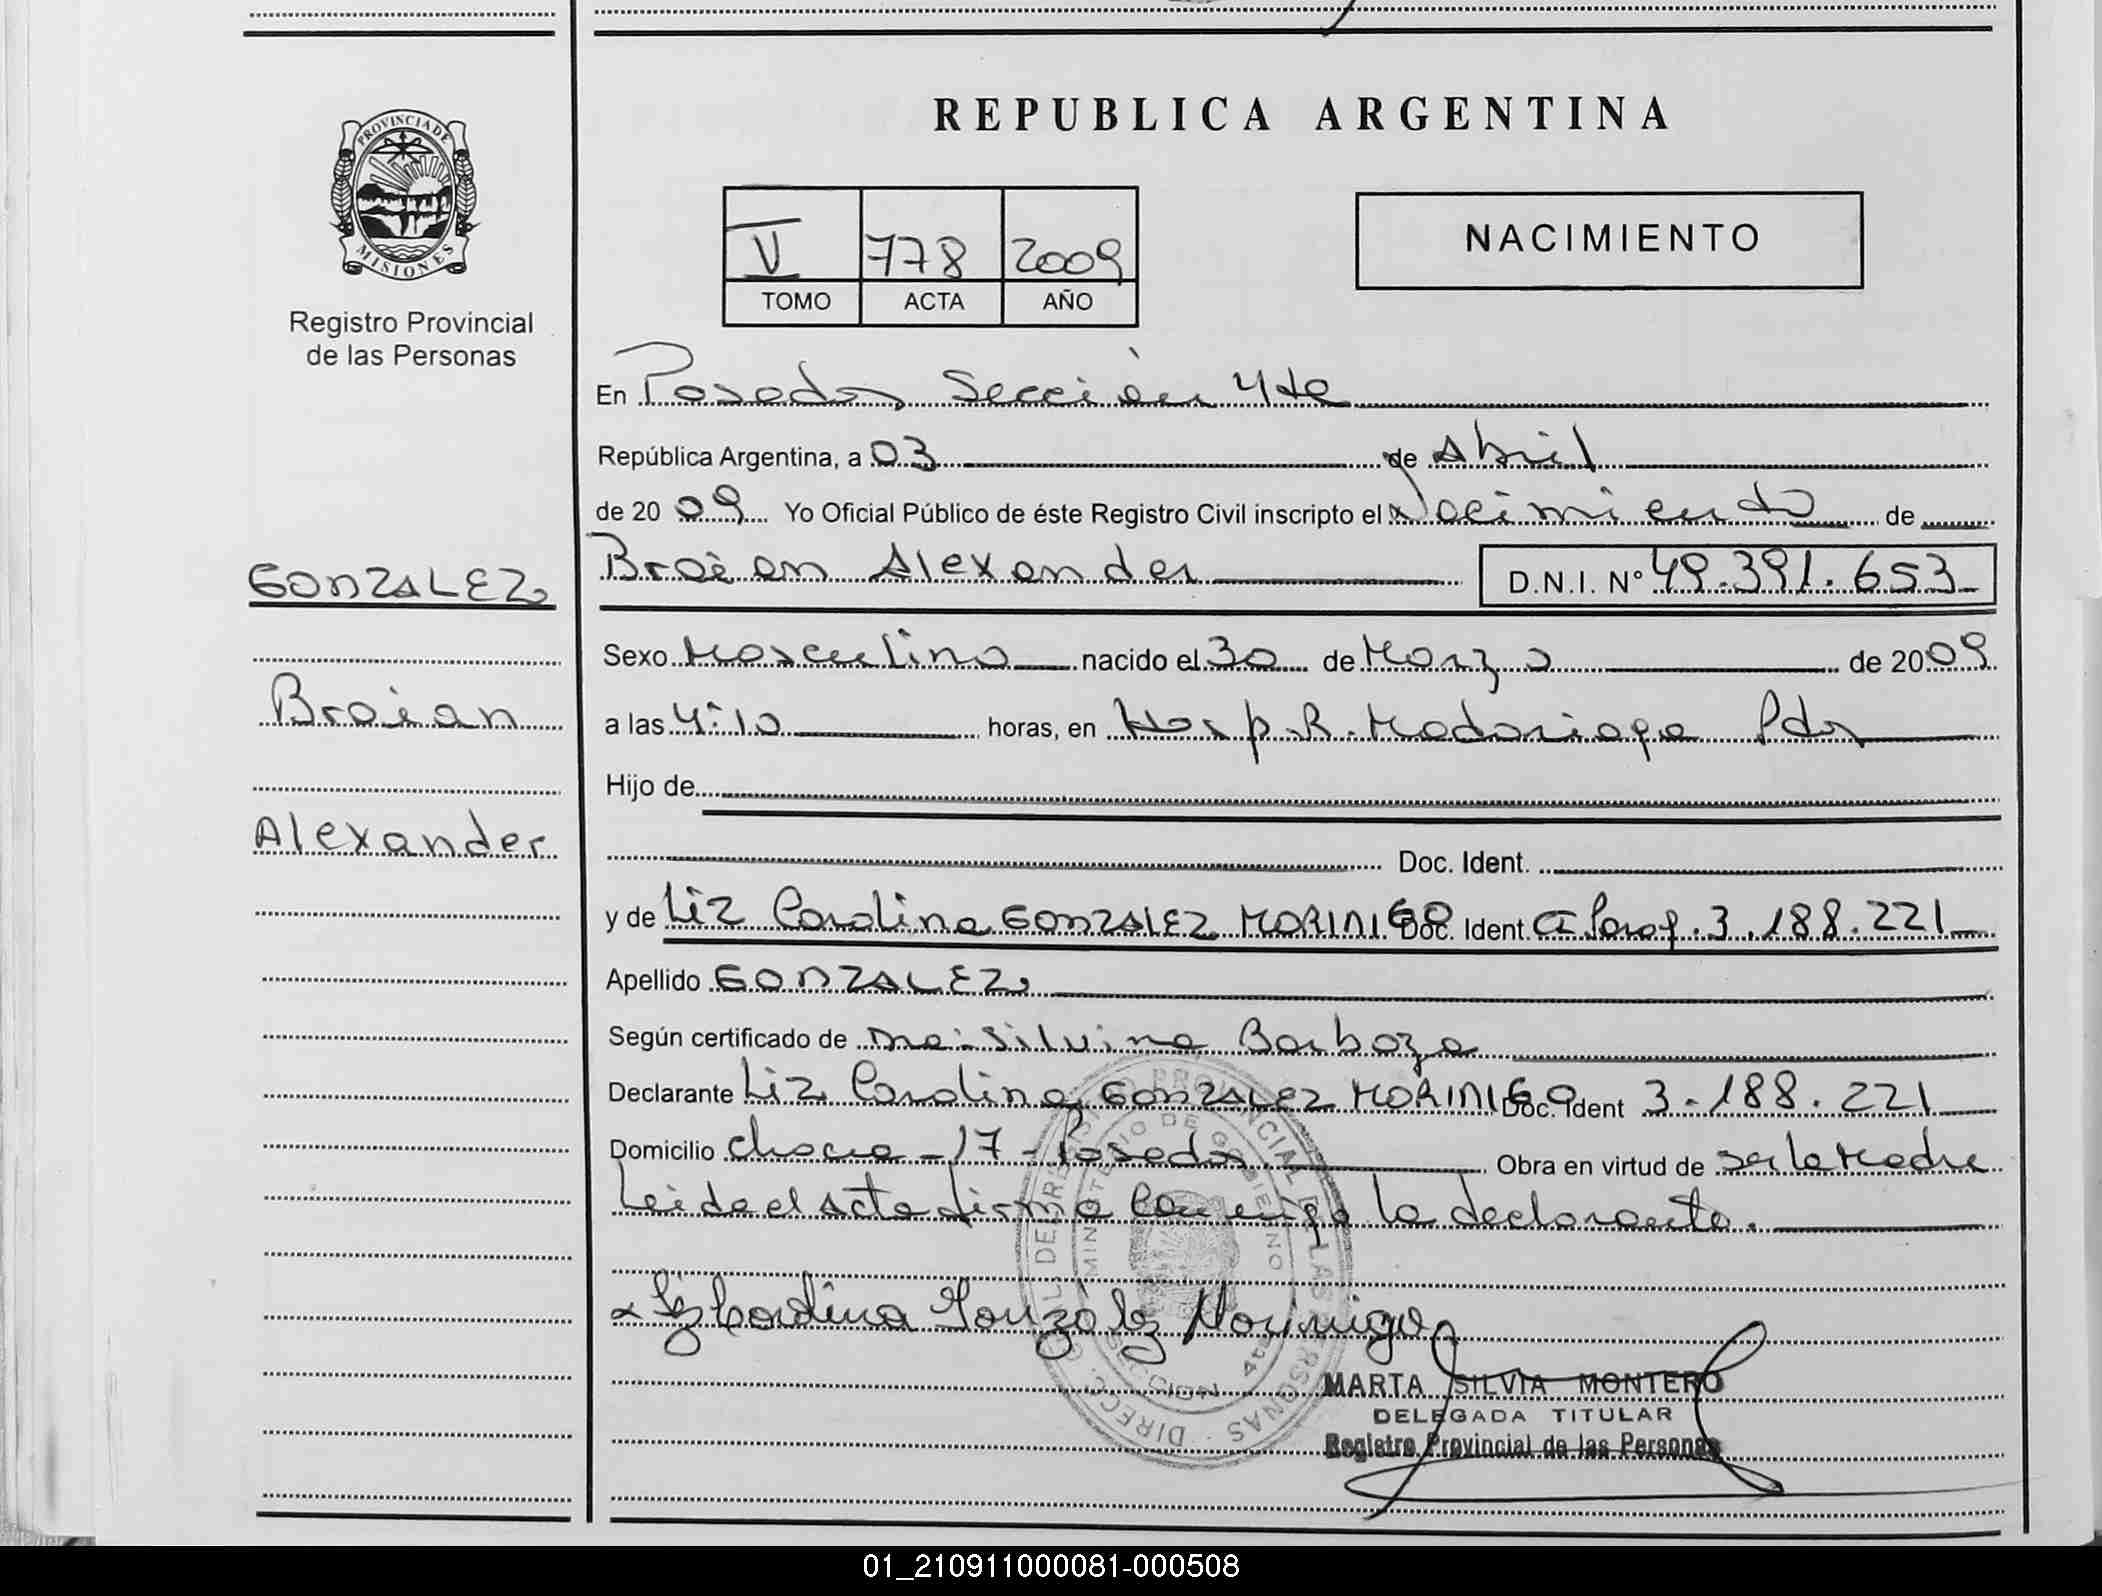 REPUBLICA ARGENTINA
PROVINCIA DE
MISIONES
Registro Provincial
de las Personas
NACIMIENTO
V 778 2009
TOMO ACTA AÑO
En Posadas Sección 4ta
República Argentina, a 03 de Abril
de 20 09 Yo Oficial Público de éste Registro Civil inscripto el Nacimiento de
GONZALEZ,
Braian
Alexander
Braian Alexander D.N.I. N° 49.391.653
Sexo Masculino nacido el 30 de Marzo de 20 09
a las 4:10 horas, en Hosp. R. Madariaga Pdas
Hijo de
Doc. Ident.
y de Liz Carolina GONZALEZ MORINIGO Doc. Ident. CI Parag. 3.188.221
Apellido GONZALEZ,
Según certificado de Silvina Barboza
Declarante Liz Carolina GONZALEZ MORINIGO Doc. Ident 3.188.221
Domicilio chacra - 17 - Posadas Obra en virtud de ser la Madre
Leida el Acta firma conmigo la declarante.
Liz Carolina González Morinigo
DIRECC. GRAL. DEL REGISTRO PROVINCIAL DE LAS PERSONAS
MINISTERIO DE GOBIERNO
SECCION 4ta
MARTA SILVIA MONTERO
DELEGADA TITULAR
Registro Provincial de las Personas
01_210911000081-000508